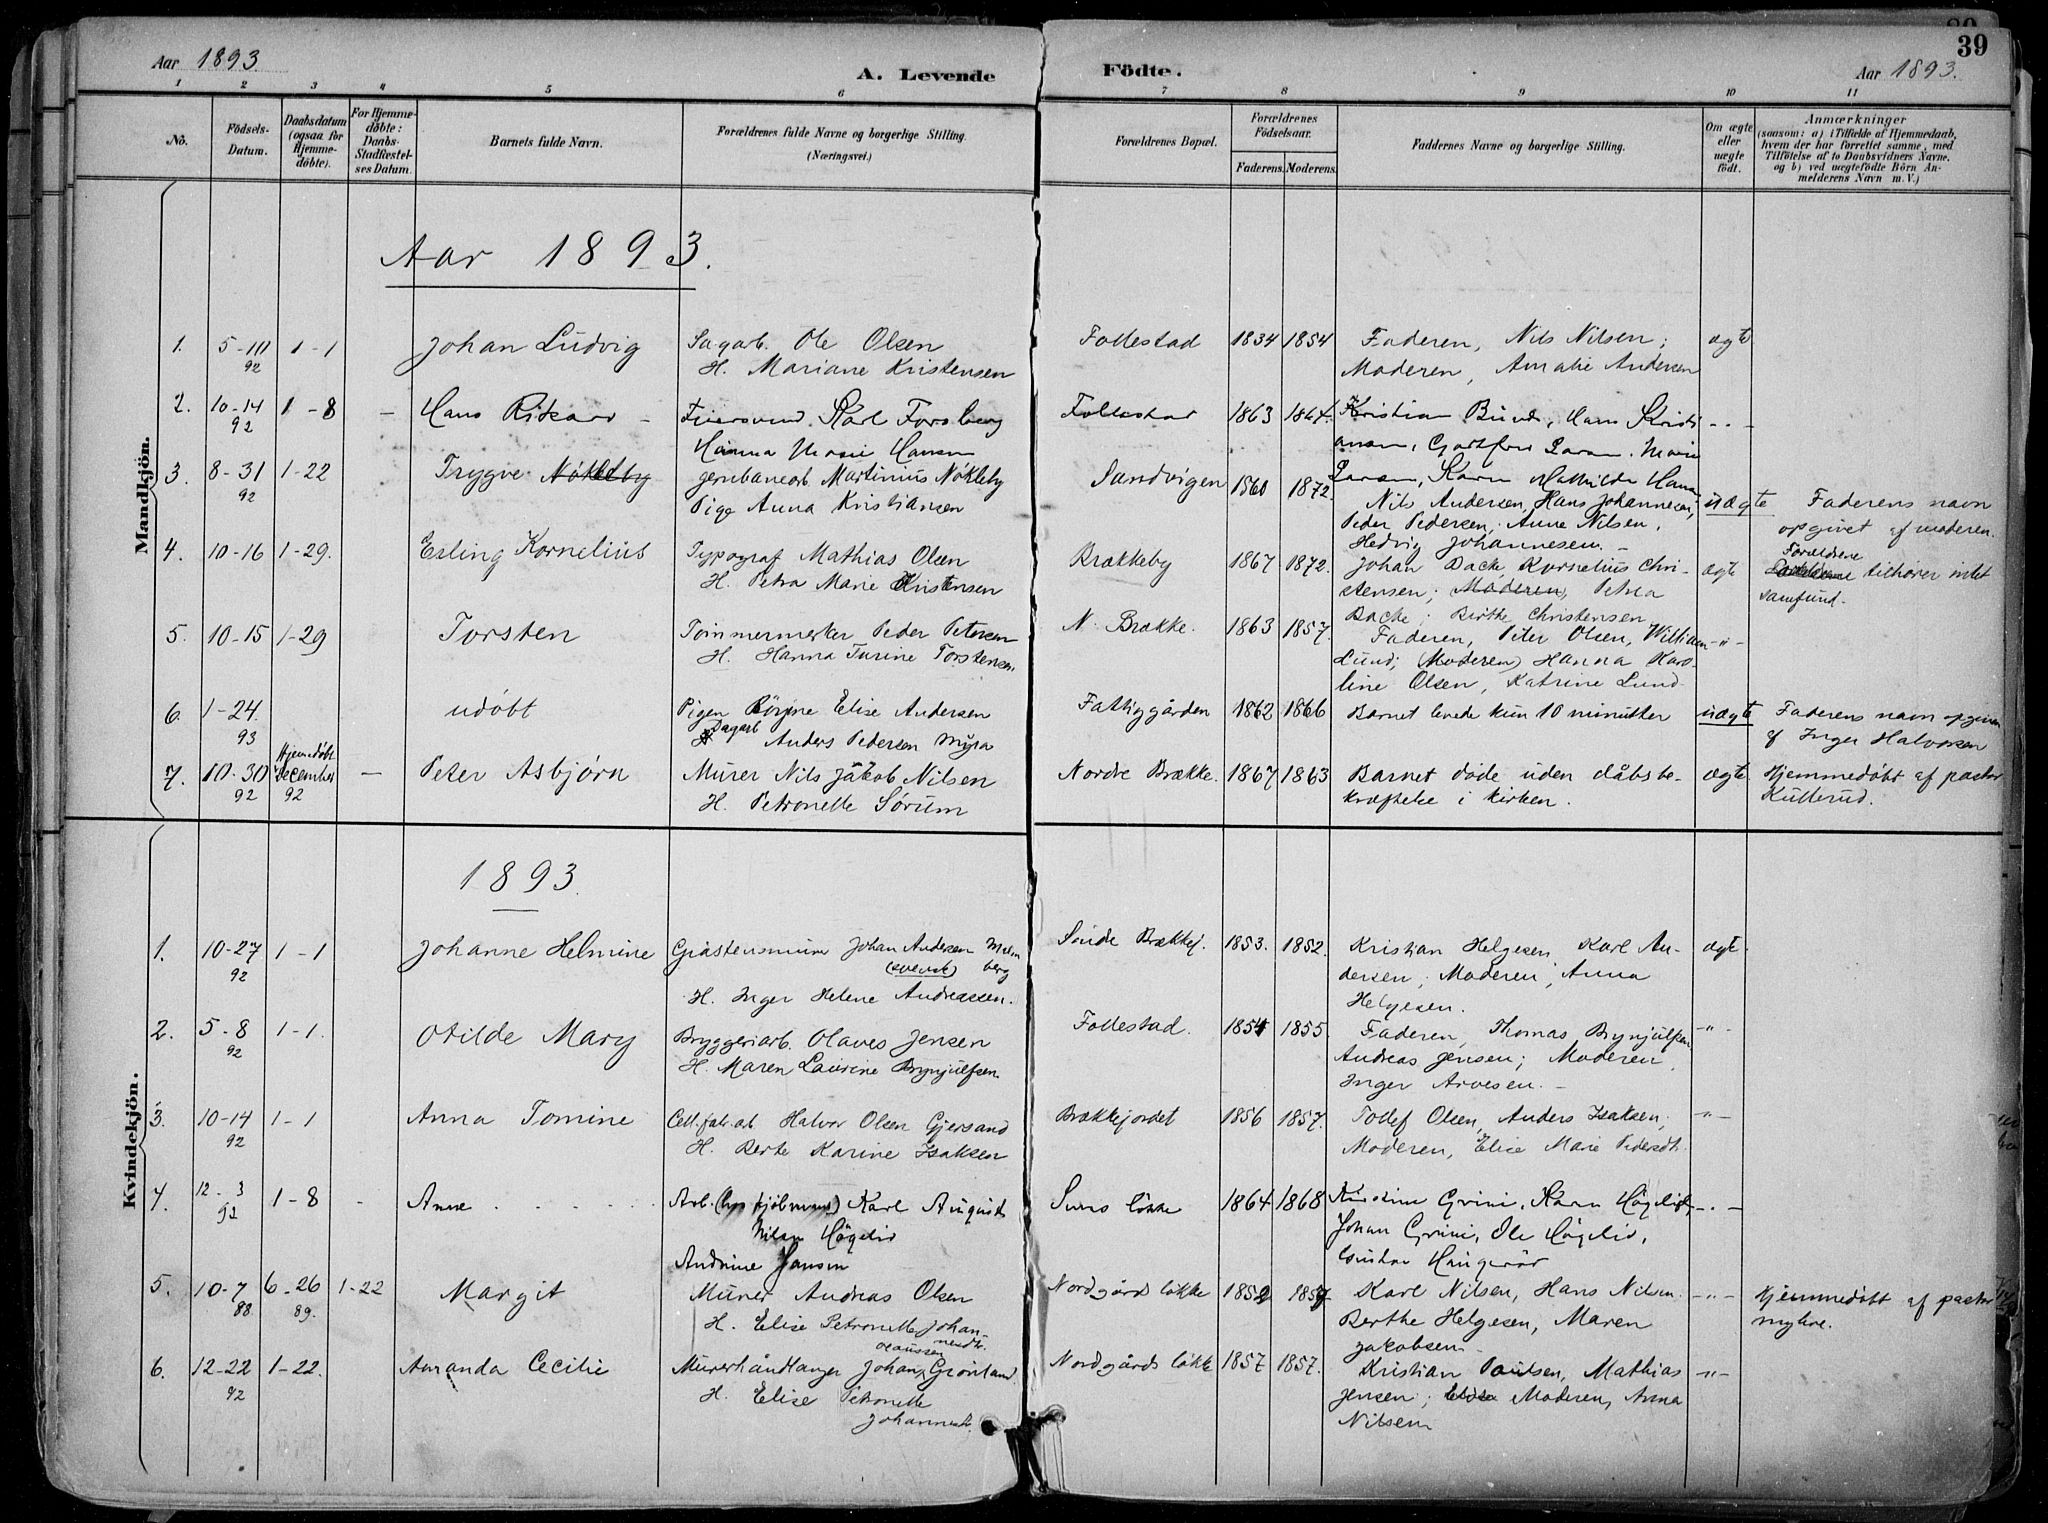 39
Aar 1893.
A. Levende Födte.
Aar 1893.
1 2 3 4 5 6 7 8 9 10 11
No.
Födsels-
Datum.
Daabsdatum
(ogsaa for
Hjemme-
döbte).
For Hjemme-
döbte:
Daabs-
Stadfæstel-
ses Datum.
Barnets fulde Navn.
Forældrenes fulde Navne og borgerlige Stilling.
(Næringsvei.)
Forældrenes Bopæl.
Forældrenes
Födselsaar.
Faderens. Moderens.
Faddernes Navne og borgerlige Stilling.
Om ægte
eller
uægte
födt.
Anmærkninger
(saasom: a) i Tilfælde af Hjemmedaab,
hvem der har forrettet samme, med
Tilföielse af to Daabsvidners Navne.
og b) ved uægtefödte Börn An-
melderens Navn m. V.)
Mandkjön.
Aar 1893.
1. 5-10 92 1-1 Johan Ludvig Sagarb. Ole Olsen
H. Mariane Kristensen
Follestad 1834 1854 Faderen, Nils Nilsen;
Moderen, Amalie Andersen
ægte
2. 10-14 92 1-8 - Hans Rikard - Karl Forsberg
Hanna Marie Hansen
Follestad 1863 1864. Kristian Hans Kristi
ansen, Marie
Karen Mathilde Hansen
-"-
3. 8-31 92 1-22 Trygve Nökleby jernbanearb. Martinius Nökleby
Pige Anna Kristiansen
Sandvigen 1860 1872. Nils Andersen, Hans Johannesen,
Peder Pedersen, Anne Nilsen,
Hedvig Johannesen. -
uægte Faderens navn
opgivet af moderen.
4. 10-16 1-29. Erling Kornelius Typograf Mathias Olsen
H. Petra Marie Kristensen
Brækkeby 1867 1872. Johan Backe Kornelius Chri-
stensen; Moderen, Petra
Backe; Berthe Christensen
ægte Forældrene
tilhører intet
samfund.
5. 10-15 1-29 Torsten Tømmermerker Peder Petersen
H. Hanna Turine Torstensen.
N. Brække. 1863 1857. Faderen, Peter Olsen, William
Lund; (Moderen) Hanna Karo-
line Olsen, Katrine Lund.
-"-
6. 1-24. 93 udøbt Pigen Elise Andersen
Dagarb. Anders Pedersen Myra
Fattiggården 1862 1866 Barnet levede kun 10 minutter
uægte Faderens navn opgiven
af Inger Halvorsen
7. 10-30 92 Hjemedøbt December 92 - Peter Asbjørn Murer Nils Jakob Nilsen
H. Petronelle Sørum
Nordre Brække. 1867 1863 Barnet døde uden dåbsbe-
kræftelse i kirken.
ægte Hjemmedøbt af pastor
Kullerud.
Kvindekjön.
1893.
1. 10-27 92 1-1 Johanne Helmine Gråstensmurer Johan Andersen Malm
(svensk) berg
H. Inger Helene Andreassen.
Søndre Brækkej. 1853. 1852. Kristian Helgesen, Karl An-
dersen; Moderen, Anna
Helgesen.
ægt.
2. 5-8 92 1-1. Otilde Mary Bryggeriarb. Olaves Jensen
H. Maren Laurine Brynjulfsen.
Follestad. 1854 1855 Faderen, Thomas Brynjulfsen
Andreas Jensen; Moderen,
Inger Arvesen. -
-"-
3. 10-14 92 1-1 Anna Tomine Cell.fab.arb. Halvor Olsen Gjersand
H. Berte Karine Isaksen
Brækkejordet 1856 1857. Tollef Olsen, Anders Isaksen;
Moderen, Elise Marie Pedersdt.
-"-
4. 12-3 92 1-8 - Anne . . . . . Arb. Karl August
Nilsen Høgelid
Andrine Jansen
løkke 1864 1868 Grini, Karen Høgelid,
Johan Grini, Ole Høgelid,
Gustav Haugerør
-"-
5. 10-7 88 6-26 89. 1-22 Margit Murer Andreas Olsen
H. Elise Petronelle Johan-
nesdt.
Nordgårds løkke 1852 1857 Karl Nilsen, Hans Nilsen.
Berthe Helgesen, Maren
Jakobsen -
-"- Hjemmedøbt af pastor
Myhre.
6. 12-22 92 1-22. Amanda Cecilie Olaussen
Murerhåndlanger Johan Grønland
H. Elise Petronelle
Johannesdt.
Nordgårds løkke 1857 1857. Kristian Paulsen, Mathias
Jensen; Elise Moderen, Anna
Nilsen
-"-